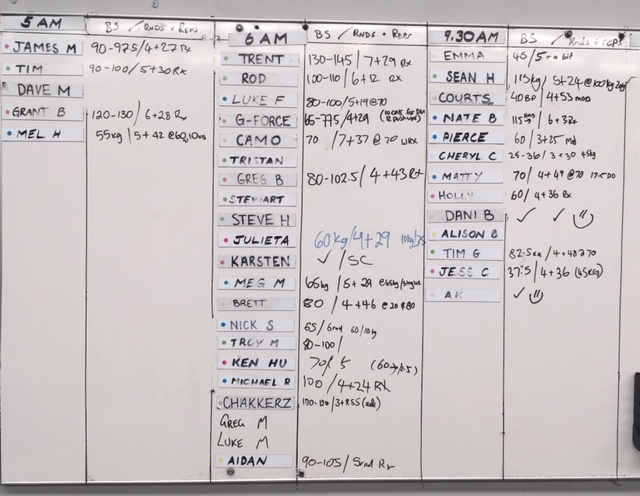 5 AM BS / RNDS + REPS
JAMES M 90-97.5/4+27 Rx
TIM 90-100/5+30 Rx
DAVE M
GRANT B 120-130/6+28 Rx
MEL H 55kg/5+42 @60,10
6 AM BS / RNDS + REPS
TRENT 130-145/7+29 Rx
ROD 100-110/6+12 Rx
LUKE F 80-100/5+19@70
G-FORCE
CAMO 70/7+37 @ 70
TRISTAN
GREG B 80-102.5/4+43 Rx
STEWART
STEVE H
JULIETA 60kg/4+29
KARSTEN ✓/SC
MEG M 65kg/5+29
BRETT 80/4+46 @
NICK S 55/ 60/10kg
TROY M 80-100/
KEN HU 70/5
MICHAEL R 100/4+24 Rx
CHAKKERZ
GREG M
LUKE M
AIDAN 90-105/ Rx
9.30AM BS / RNDS + REPS
EMMA 45/5
SEAN H 115kg/5+24@100kg
COURTS 40BP/4+53 mod
NATE B 6+32
PIERCE 60/3+25
CHERYL C 3+30
MATTY 70/4+49 @70
HOLLY 60/4+36 Rx
DANI B ✓ ✓
ALISON B
TIM G 82.5kg/4+48
JESS C 37.5/4+36 (45KG)
AK ✓